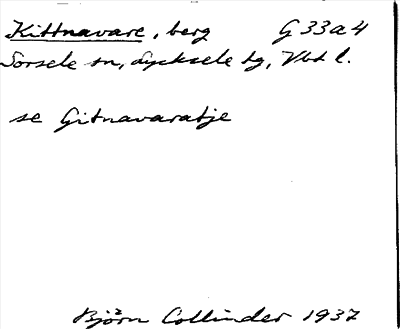 Kittnavare, berg G 33a4
Sorsele sn, Lycksele tg, Vbt l.
se Gitnavaratje
Björn Collinder 1937